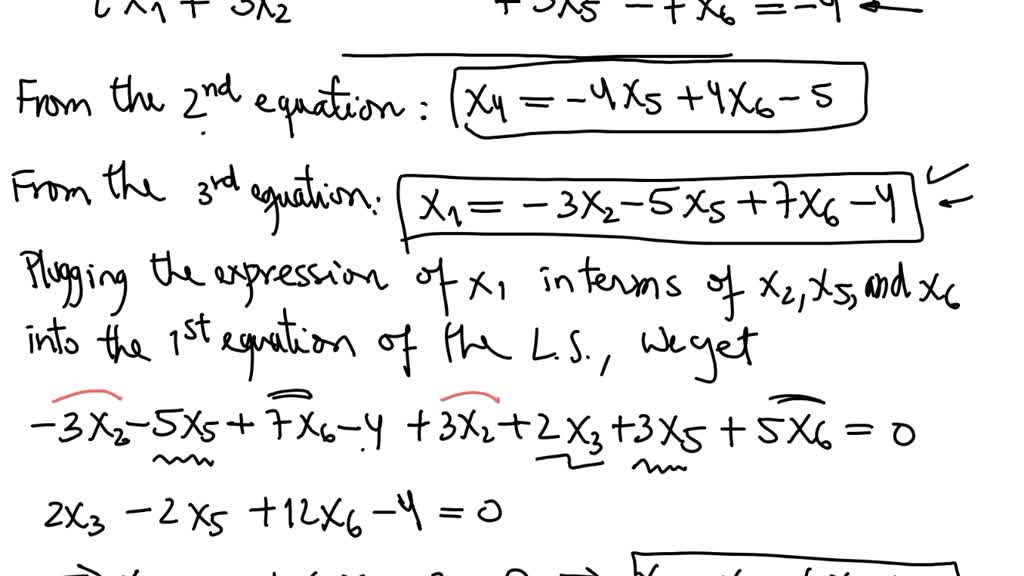 x₁ + 3x₂ + 5x₅ − 7x₆ = −4
From the 2nd equation: x₄ = −4x₅ + 4x₆ − 5
From the 3rd equation: x₁ = −3x₂ − 5x₅ + 7x₆ − 4
Plugging the expression of x₁ in terms of x₂, x₅, and x₆
into the 1st equation of the L.S., we get
−3x₂ − 5x₅ + 7x₆ − 4 + 3x₂ + 2x₃ + 3x₅ + 5x₆ = 0
2x₃ − 2x₅ + 12x₆ − 4 = 0